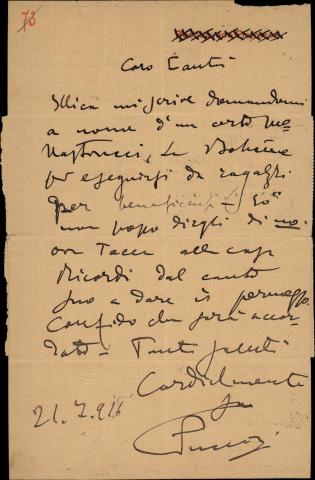 73
Caro Tanti
Illica mi scrive domandomi
a nome d'un certo Mo
Mastrucci, la Bohème
per eseguirsi da ragazzi
per beneficenza - Io
non posso dirgli di no
ora Tocca alla casa
Ricordi dal canto
suo a dare il permesso.
Confido che sarà accor-
dato - Tanti saluti
Cordialmente
suo
Puccini
21.7.916